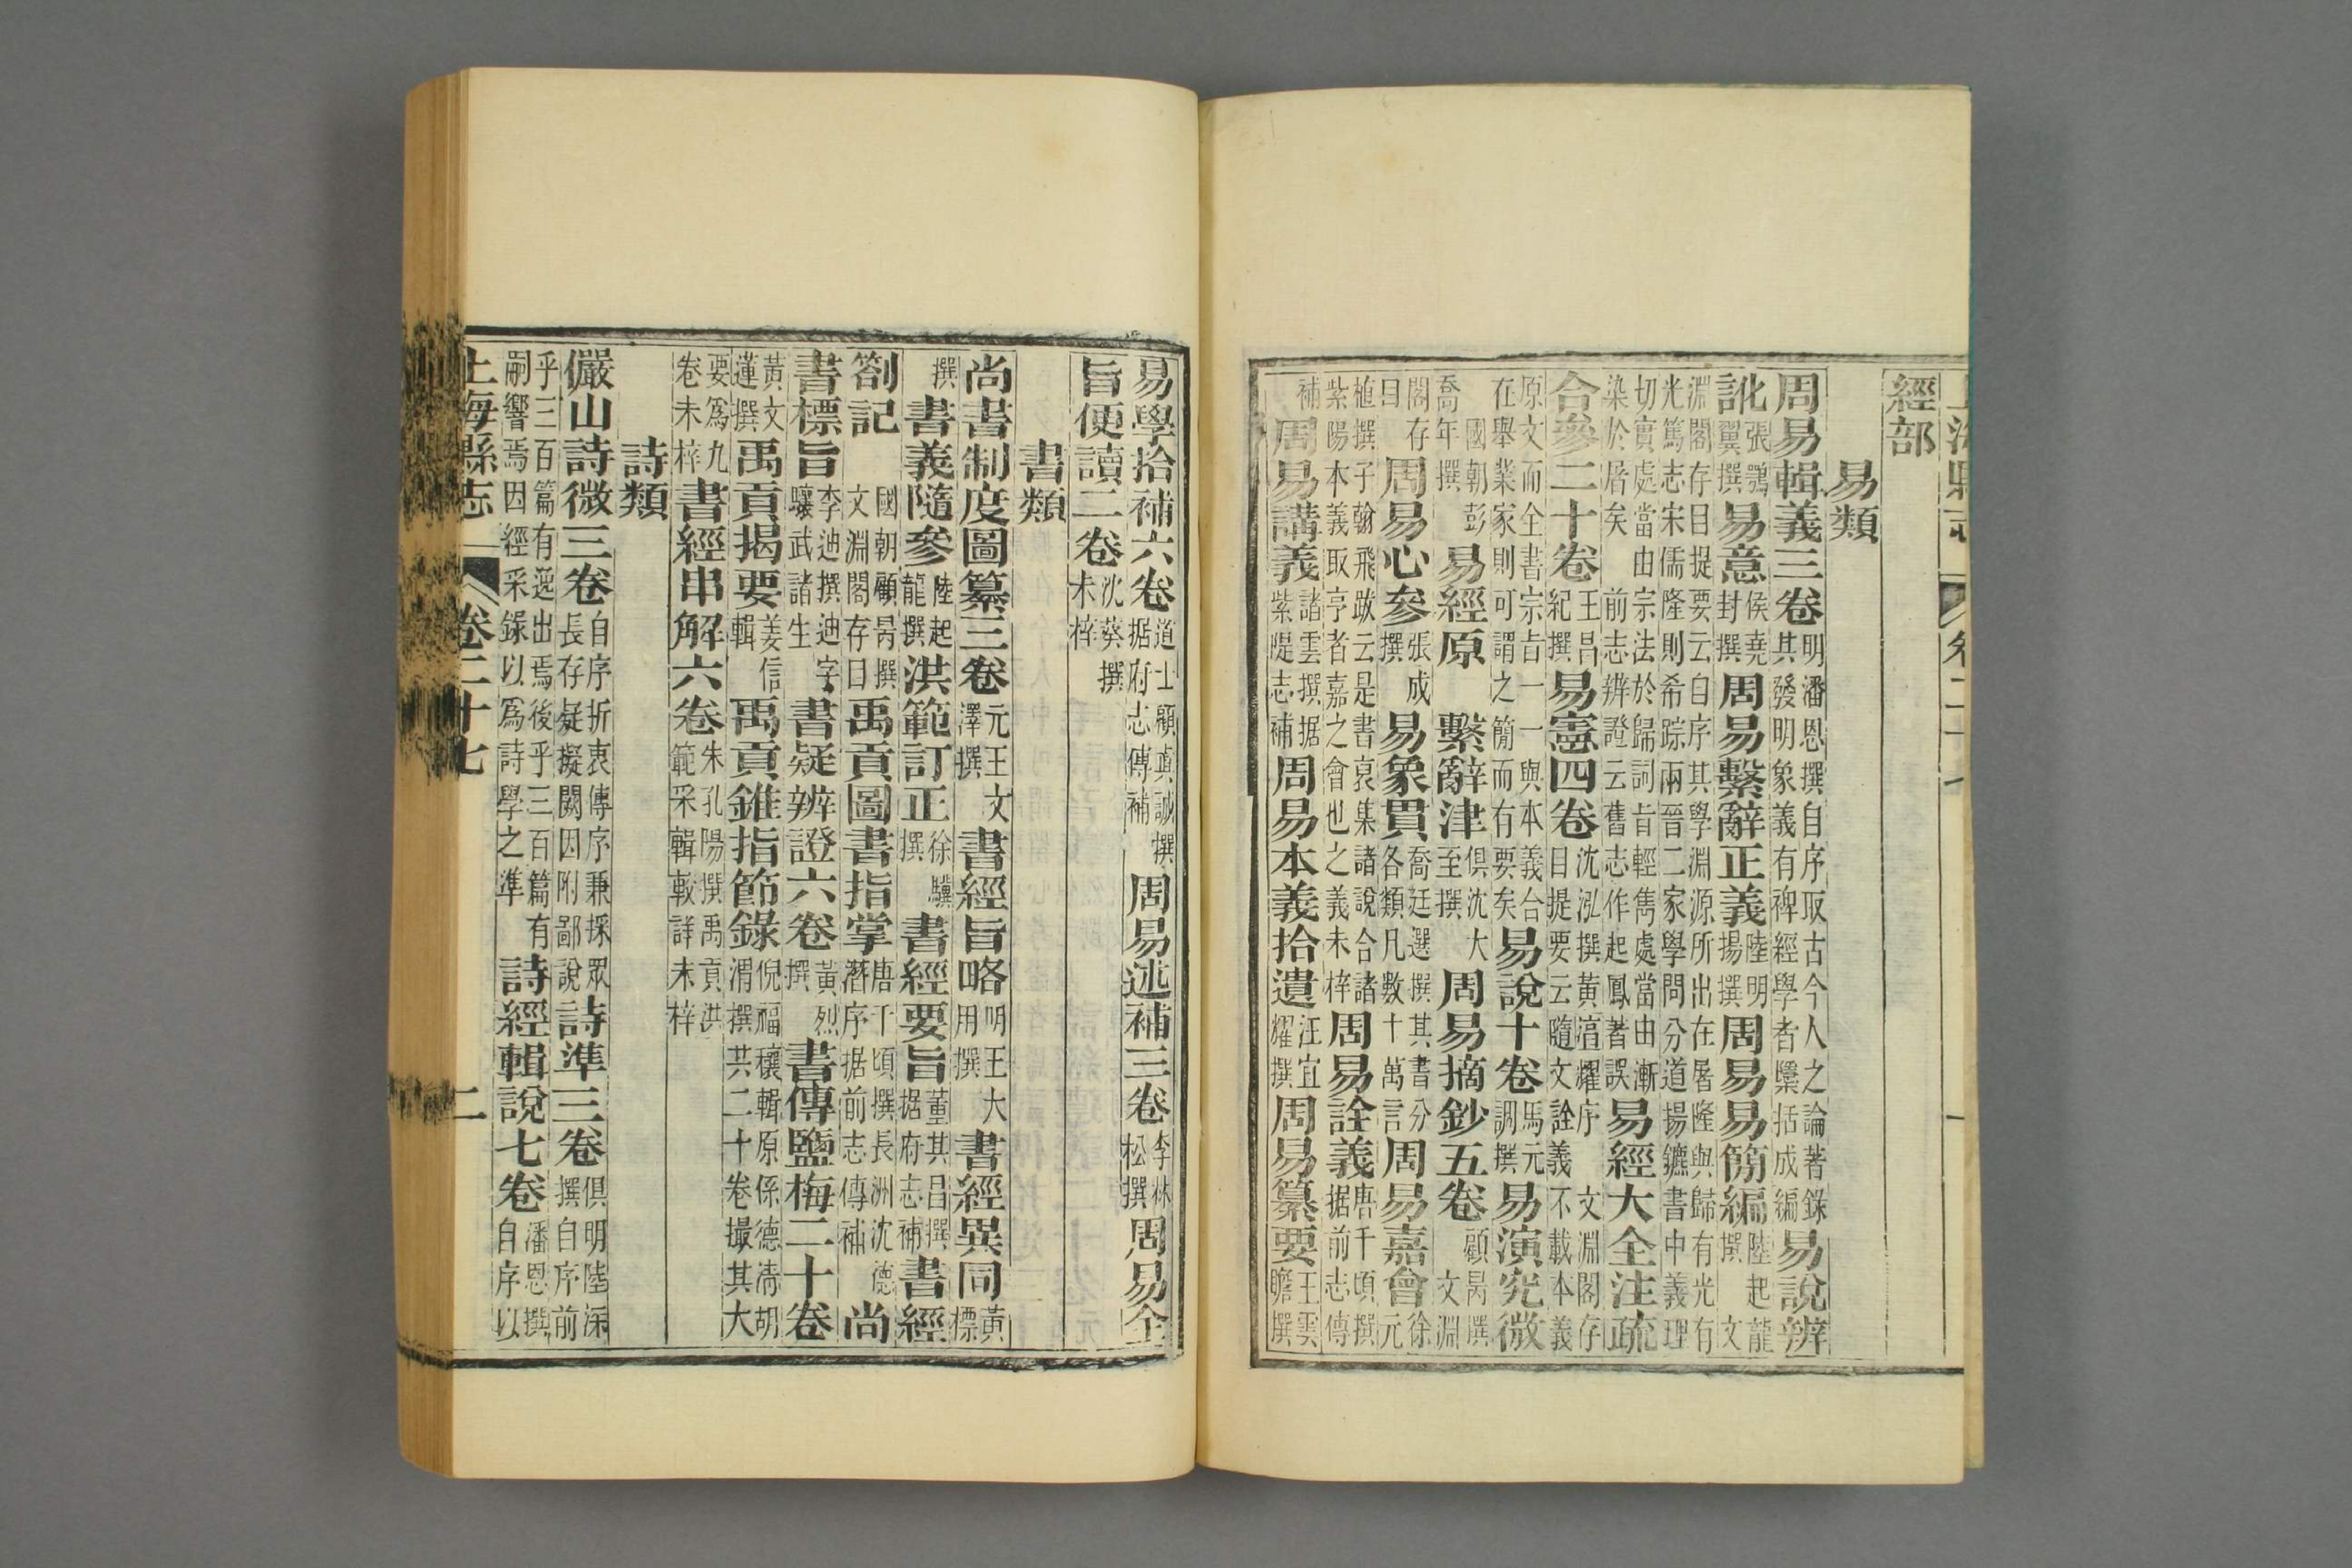 經部
易類
周易輯義三卷明潘恩撰自序取古今人之論著錄其發明象義有裨經學者檃括成編易說辨
訛張鶚翼撰易意侯堯封撰周易繫辭正義陸明揚撰周易易簡編陸起龍撰文
淵閣存目提要云自序其學淵源所出在屠隆與歸有光有光篤志宋儒隆則希踪兩晉二家學問分道揚鑣書中義理
切實處當由宗法於歸詞旨輕雋處當由漸染於屠矣前志辨證云舊志作起鳳著誤易經大全注疏
合參二十卷王昌紀撰易憲四卷沈泓撰黃耀序文淵閣存目提要云隨文詮義不載本義
原文而全書宗旨一一與本義合在舉業家則可謂之簡而有要矣易說十卷馬元調撰易演究微
國朝彭喬年撰易經原繫辭津俱沈大至撰周易摘鈔五卷顧昺撰文淵
閣存目周易心參張成撰易象貫喬廷選撰其書分各類凡數十萬言周易嘉會徐元
植撰子翰飛跋云是書裒集諸說合諸紫陽本義取亨者嘉之會也之義未梓周易詮義唐千頃撰据前志傳
補周易講義諸雲撰据紫隄志補周易本義拾遺汪宜耀撰周易纂要王雲瞻撰
易學拾補六卷道士顧真誠撰据府志傳補周易述補三卷李林松撰周易全
旨便讀二卷沈蔡撰未梓
書類
尚書制度圖纂三卷元王文澤撰書經旨略明王大用撰書經異同黃標
撰書義隨參陸起龍撰洪範訂正徐驥撰書經要旨董其昌撰据府志補書經
劄記國朝顧昺撰文淵閣存目禹貢圖書指掌唐千頃撰長洲沈德潛序据前志傳補尚
書標旨李迪撰迪字驤武諸生書疑辨證六卷黃烈撰書傳鹽梅二十卷
黃文蓮撰禹貢揭要姜信輯禹貢錐指節錄倪福穰輯原係德清胡渭撰共二十卷撮其大
要爲九卷未梓書經串解六卷朱孔陽撰禹貢洪範采輯較詳未梓
詩類
儼山詩微三卷自序折衷傳序兼採眾長存疑擬闕因附鄙說詩準三卷俱明陸深撰自序前
乎三百篇有逸出焉後乎三百篇有嗣響焉因經采錄以爲詩學之準詩經輯說七卷潘恩撰自序以
上海縣志 卷二十七 二